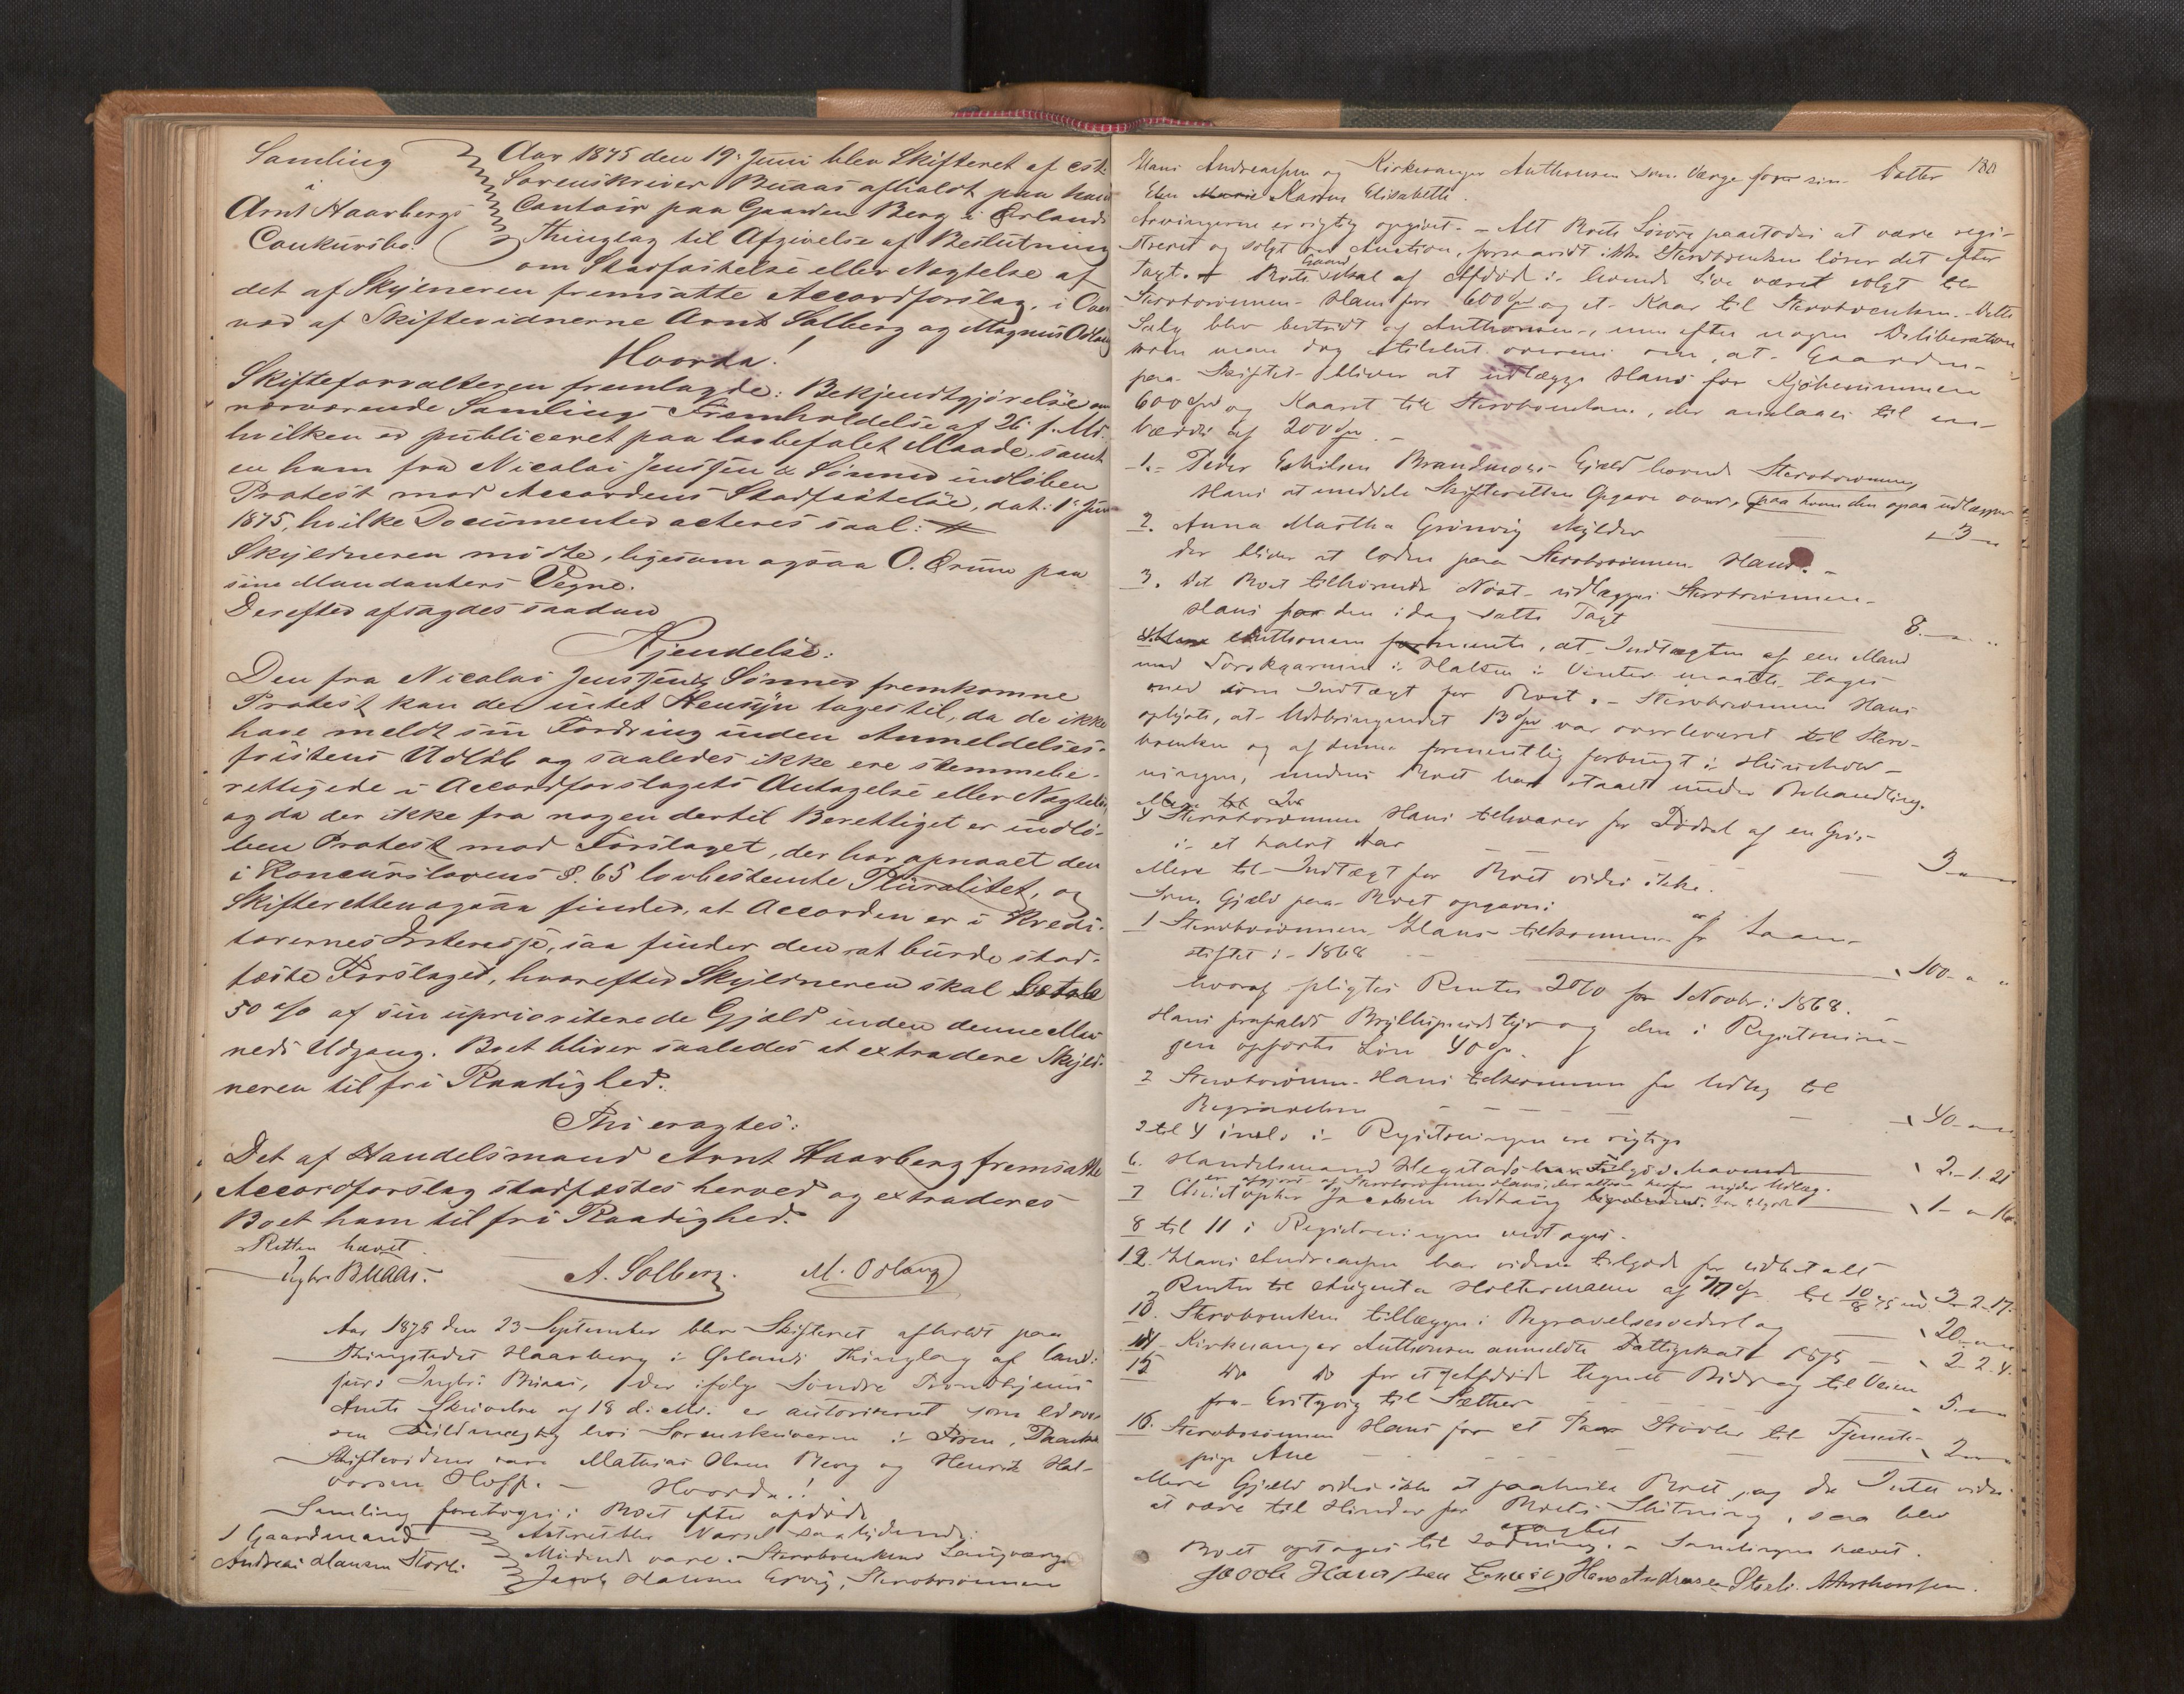 Samling
i
Arnt Haarbergs
Conkursbo.
Aar 1875 den 19. Juni blev Skifteret af cst.
Sorenskriver Buaas afholdt paa hans
Contoir paa Gaarden Berg i Ørlands
Thinglag til Afgivelse af Beslutning
om Stadfæstelse eller Nægtelse af
det af Skyldneren fremsatte Accordforslag, i Over
vær af Skiftevidnerne Arnt Solberg og Magnus Osland
Hvorda!
Skifteforvalteren fremlagde: Bekjendtgjørelse om
nærværende Samlings Fremholdelse af 26 f. Md.
hvilken er publiceret paa lovbefalet Maade, samt
en ham fra Nicolai Jenssen & Sønner indløben
Protest mod Accordens Stadfæstelse, dat: 1. Juni
1875, hvilke Documenter acteres saal:
Skyldneren mødte, ligesom ogsaa O. Ørum paa
sine Mandanters Vegne.
Derefter afsagdes saadan
Kjendelse:
Den fra Nicolai Jenssen & Sønner fremkomne
Protest kan der intet Hensyn tages til, da de ikke
have meldt sin Fordring inden Anmeldelses-
fristens Udløb og saaledes ikke ere stemmebe-
rettigede i Accordforslagets Antagelse eller Nægtelse,
og da der ikke fra nogen dertil Berettiget er indlø-
ben Protest mod Forslaget, der har opnaaet den
i Konkurslovens §. 65 lovbestemte Pluralitet, og
Skifteretten ogsaa finder, at Accorden er i Kredi-
torernes Interesse, saa finder den at burde stad-
fæste Forslaget, hvorefter Skyldneren skal betale
50 % af sin uprioriterede Gjæld inden denne Maa
neds Udgang. Boet bliver saaledes at extradere Skyld-
neren til fri Raadighed.
Thi eragtes:
Det af Handelsmand Arnt Haarberg fremsatte
Accordforslag stadfæstes herved og extraderes
Boet ham til fri Raadighed.
Retten hævet.
Ingbr. Buaas. A. Solberg. M. Osland
Aar 1875 den 23 September blev Skifteret afholdt paa
Thingstedet Haarberg i Ørlands Thinglag af Cand:
juris Ingbr: Buaas, der ifølge Søndre Trondhjems
Amts Skrivelse af 18 d. Md. er autoriseret som edsvo-
ren Fuldmægtig hos Sorenskriveren i Fosen.
Skiftevidner vare Mathias Olsen Berg og Henrik Hal-
vorsen Hoff. – Hvorda!
Samling foretoges i Boet efter afdøde
1 Gaardmand
Andreas Hansen Storli.
Acteret blev Varsel saalydende:
Mødende vare: Stervboenkens Laugværge
Jacob Hansen Ervig, Stervbosønnen
180
Hans Andreassen og Kirkesanger Anthonsen som Værge for sin Datter
Elen Karen Elisabeth.
Arvingerne er rigtig opgivet. – Alt Boets Løsøre paastodes at være regi-
streret og solgt ved Auction, forsaavidt ikke Stervboenken løser det efter
Taxt. Boets Gaard skal af Afdøde i levende Live været solgt til
Stervbosønnen Hans for 600 Spd og et Kaar til Stervboenken. – Dette
Salg blev bestridt af Anthonsen, men efter nogen Deliberation
kom man dog tilslut overens om, at Gaarden
paa Skiftet bliver at udlægge Hans for Kjøbesummen
600 Spd og Kaaret til Stervboenken, der ansloges til en
Værdi af 200 Spd. –
1. Peder Eskilsen Brandmoes Gjæld havde Stervbosønnen
Hans at meddele Skifteretten Opgave over, paa hvem den ogsaa udlægges
2. Anna Martha Grønvig skylder 3 "
der bliver at lodne paa Stervbosønnen Hans. –
3. Det Boet tilhørende Nøst udlægges Stervbosønnen
Hans for den idag satte Taxt 8. "
Anthonsen formente, at Indtægten af een Mand
med Torskgarnene i Halten i Vinter maatte tages
med som Indtægt for Boet. – Stervbosønnen Hans
oplyste, at Udbringendet 13 Spd var overleveret til Sterv-
boenken og af denne formentlig forbrugt i Huusholdn-
ningen, medens Boet har staaet under Behandling.
4 Stervbosønnen Hans tilsvarer for Fødsel af en Gris
i et halvt Aar 3 "
Mere til Indtægt for Boet vides ikke.
Som Gjæld paa Boet opgaves:
1 Stervbosønnen Hans tilkommer for Laan
stiftet i 1868 100 "
hvoraf pligtes Renter fra 1 Novbr: 1868.
Hans frafaldt Bryllupsudstyr og den i Registrerin-
gen opførte Løn 40 Spd.
2 Stervbosønnen Hans tilkommer for Udlæg til
Begravelsen 40 "
3 til 4 incl. i Registreringen ere rigtige
6. Handelsmand Hegstads Tilgodehavende 2. 1. 21
er afgjort af Stervbosønnen Hans, der altsaa herfor nyder Udlæg.
7 Christopher Jacobsen Udhaug 1 " 16
8 til 11 i Registreringen vedtages.
12. Hans Andreassen har videre tilgode for udbetalt
Renter til Augusta Holtermann af til 10/8 75 3. 2. 17.
13. Stervboenken tillægges i Begravelsesvederlag 20 "
14. Kirkesanger Anthonsen anmeldte Fattigskat 1875 2. 2. 4.
15 do do for et af Afdøde tegnet Bidrag til Veien
fra til Sæther 5. "
16. Stervbosønnen Hans for et Par Støvler til Tjeneste-
pige Ane 2 "
Mere Gjæld vides ikke at paahvile Boet, og da Intet vides
at være til Hinder for Boets Slutning, saa blev
Boet optaget til Lodning. – Samlingen hævet.
Jacob Hanssen Hans Andreasen Storli. Anthonsen.